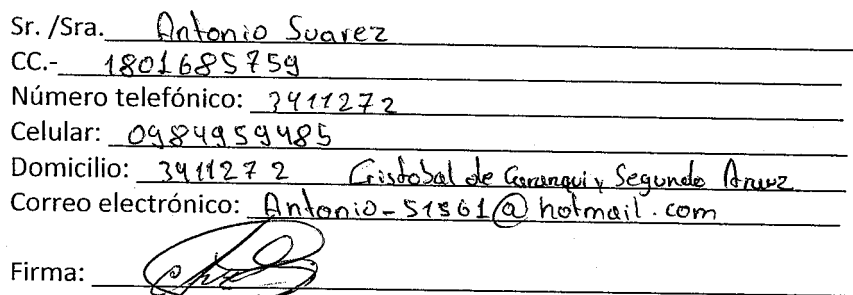 Sr. /Sra. Antonio Suarez
CC.- 1801685759
Número telefónico: 3411272
Celular: 0984959485
Domicilio: 3411272 Cristobal de Caranqui y Segundo
Correo electrónico: Antonio-51561@hotmail.com
Firma: